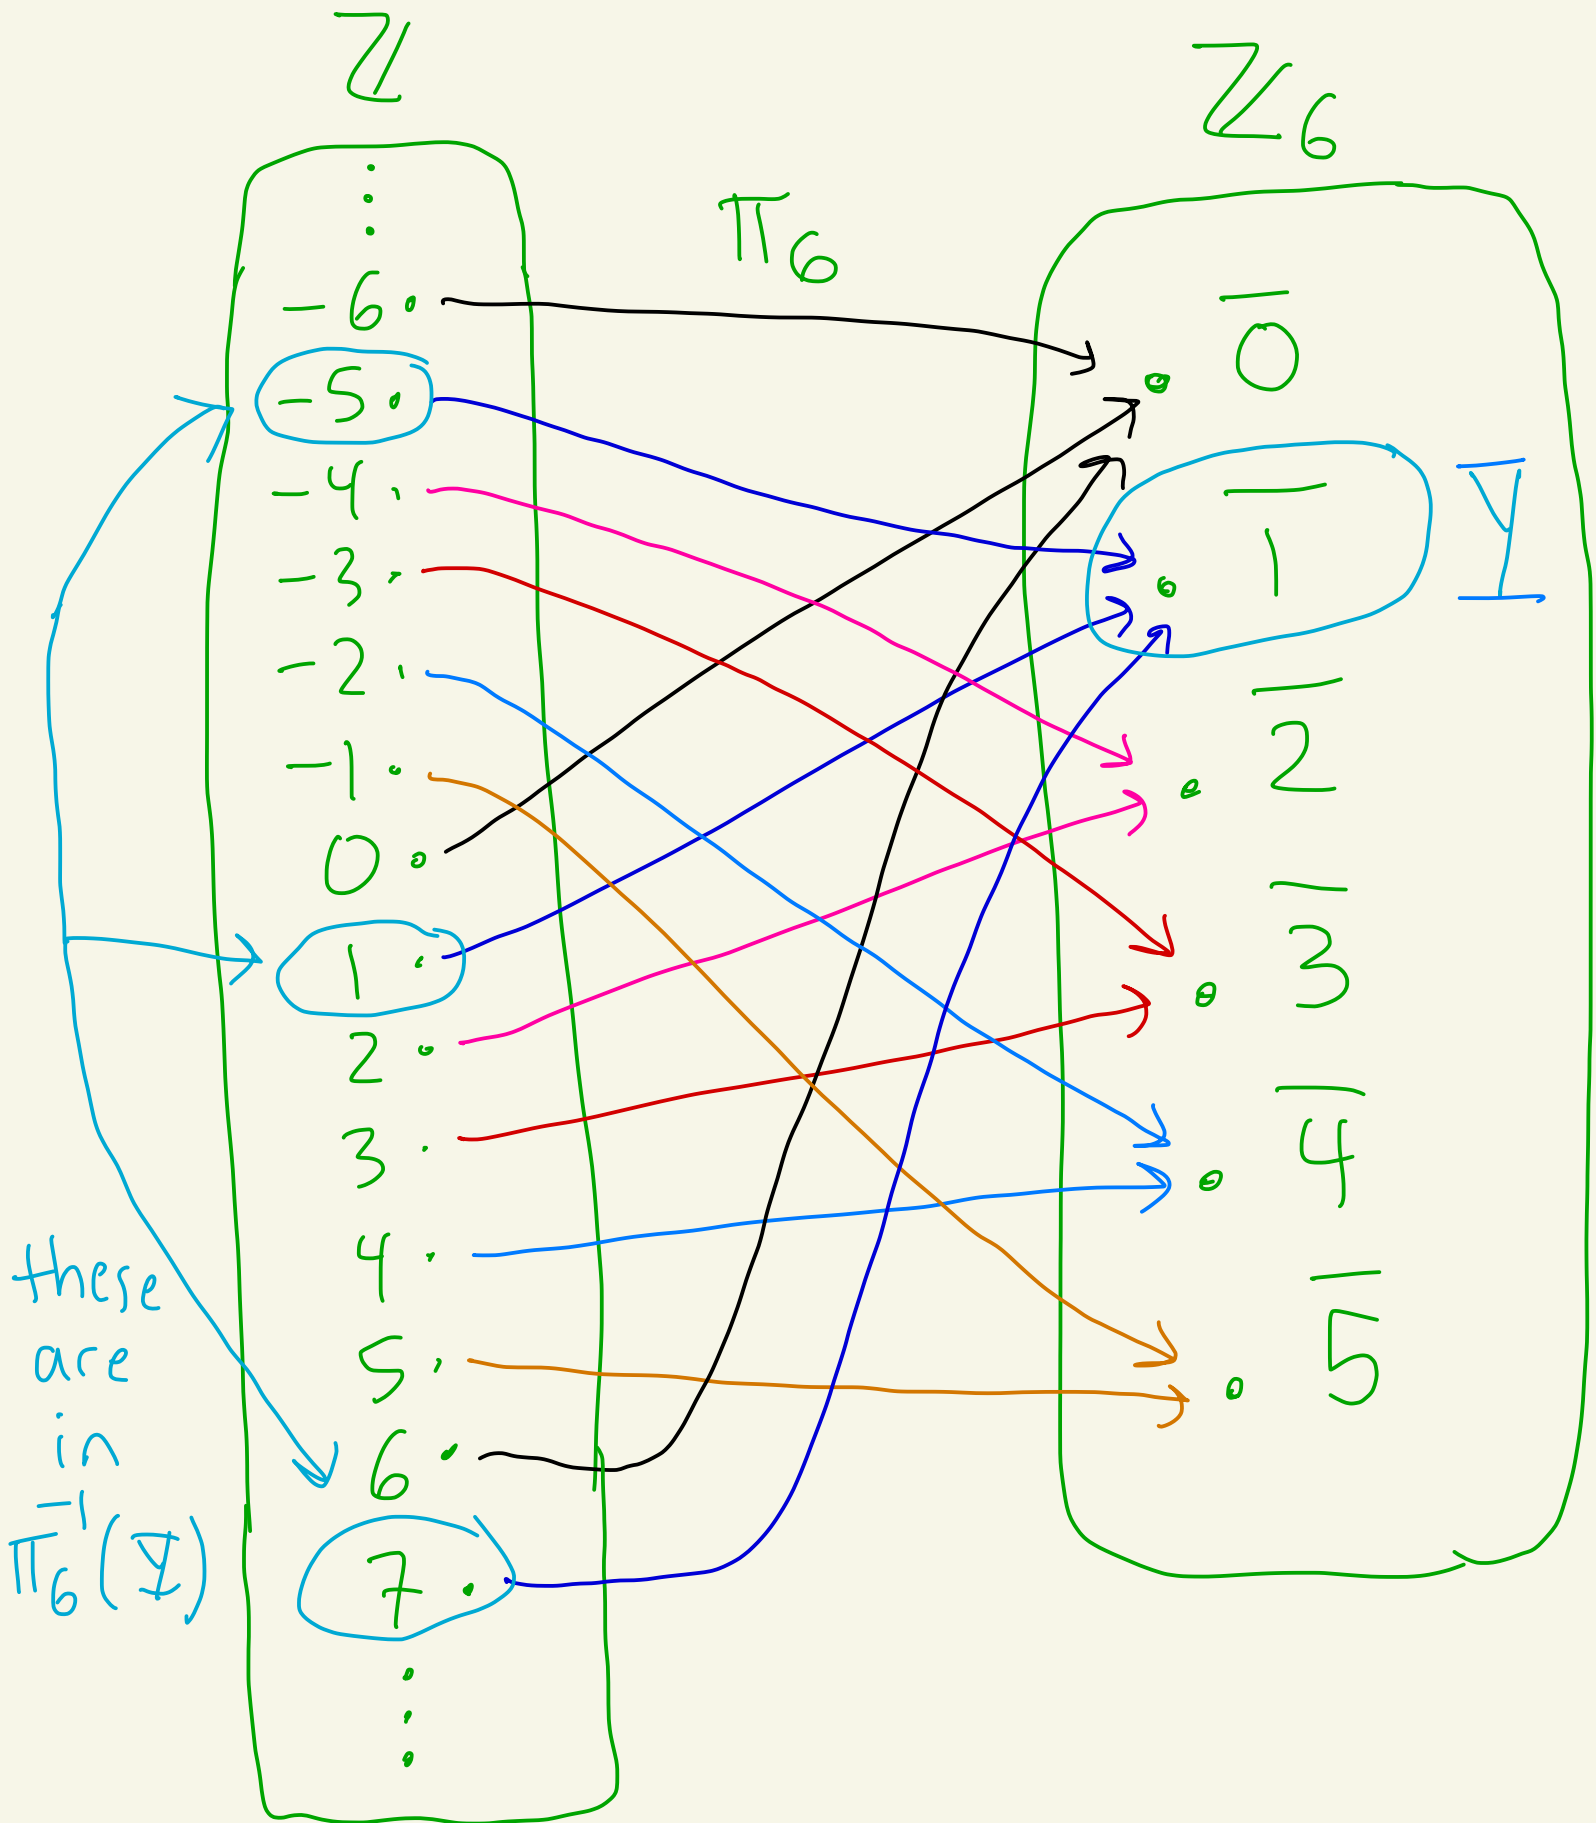 ℤ
ℤ₆
π₆
-6
-5
-4
-3
-2
-1
0
1
2
3
4
5
6
7
0̅
1̅
Y
2̅
3̅
4̅
5̅
these
are
in
π₆⁻¹(Y)